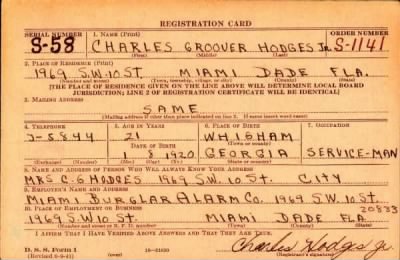 REGISTRATION CARD
SERIAL NUMBER 1. NAME (Print) ORDER NUMBER
S-58 CHARLES GROOVER HODGES Jr. S-1141
(First) (Middle) (Last)
2. PLACE OF RESIDENCE (Print)
1969 S.W. 10 ST. MIAMI DADE FLA.
(Number and street) (Town, township, village, or city) (County) (State)
[THE PLACE OF RESIDENCE GIVEN ON THE LINE ABOVE WILL DETERMINE LOCAL BOARD
JURISDICTION; LINE 2 OF REGISTRATION CERTIFICATE WILL BE IDENTICAL]
3. MAILING ADDRESS
SAME
(Mailing address if other than place indicated on line 2. If same insert word same)
4. TELEPHONE 5. AGE IN YEARS 6. PLACE OF BIRTH 7. OCCUPATION
21 WHIGHAM
DATE OF BIRTH (Town or county)
8 1920 GEORGIA SERVICE-MAN
(Exchange) (Number) (Mo.) (Day) (Yr.) (State or country)
8. NAME AND ADDRESS OF PERSON WHO WILL ALWAYS KNOW YOUR ADDRESS
MRS C. G HODGES 1969 S.W. 10 ST. CITY
9. EMPLOYER'S NAME AND ADDRESS
MIAMI BURGLAR ALARM CO. 1969 S.W. 10 ST.
10. PLACE OF EMPLOYMENT OR BUSINESS 20833
1969 S.W. 10 ST. MIAMI DADE FLA
(Number and street or R. F. D. number) (Town) (County) (State)
I AFFIRM THAT I HAVE VERIFIED ABOVE ANSWERS AND THAT THEY ARE TRUE.
D. S. S. Form 1 Charles Hodges Jr.